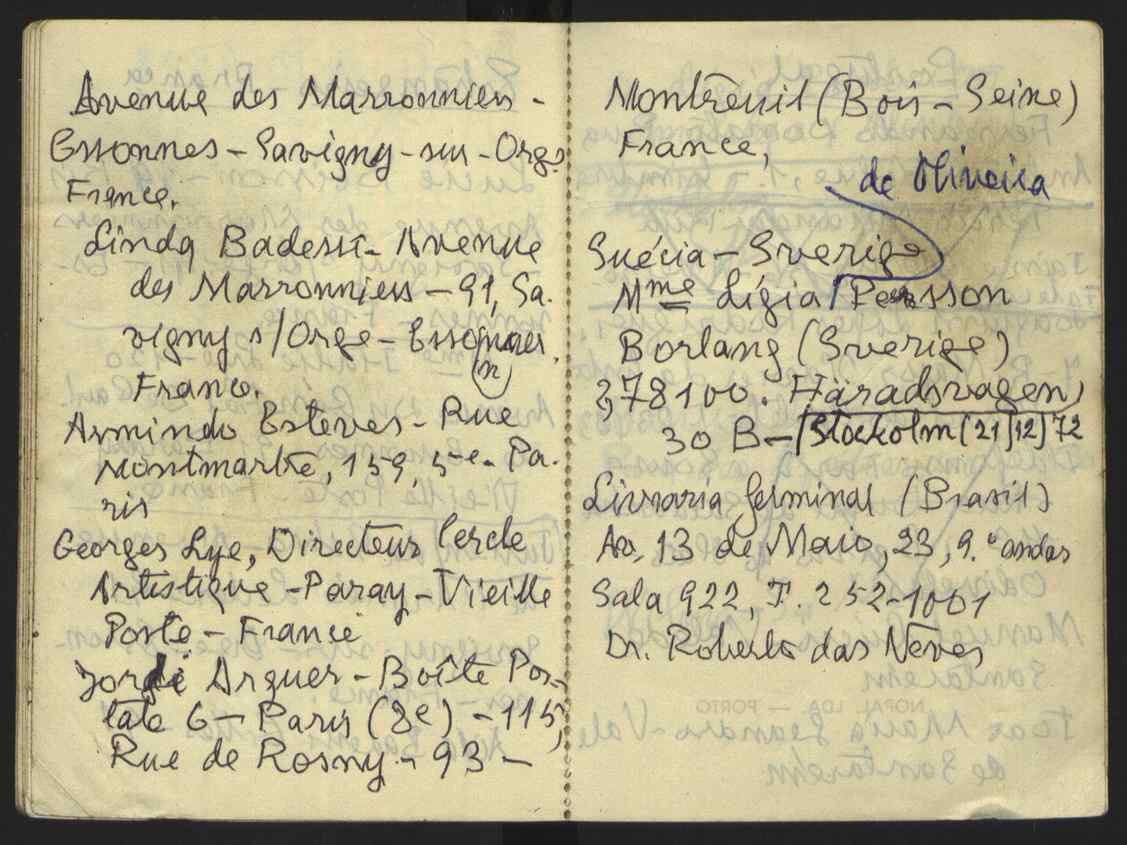 Avenue des Marronniers -
Essonnes - Savigny - sur - Orge
France.
Linda Badesci - Avenue
des Marronniers - 91, Sa-
vigny s/Orge - Essonnes,
(n)
France.
Armindo Esteves - Rue
Montmartre, 159, 5e - Pa-
ris
Georges Lye, Directeur Cercle
Artistique - Paray - Vieille
Poste - France
Jordi Arquer - Boîte Pos-
tale 6 - Paris (8e) - 115,
Rue de Rosny - 93 -
Montreuil (Bois - Seine)
France,
de Oliveira
Suécia - Sverige
Mme Lígia / Persson
Borlang (Sverige)
78100. Häradsvagen,
30 B - / Stokolm (21/12) 72
Livraria Germinal (Brasil)
Av. 13 de Maio, 23, 9.º andar
Sala 922, T. 252-1001
Dr. Roberto das Neves